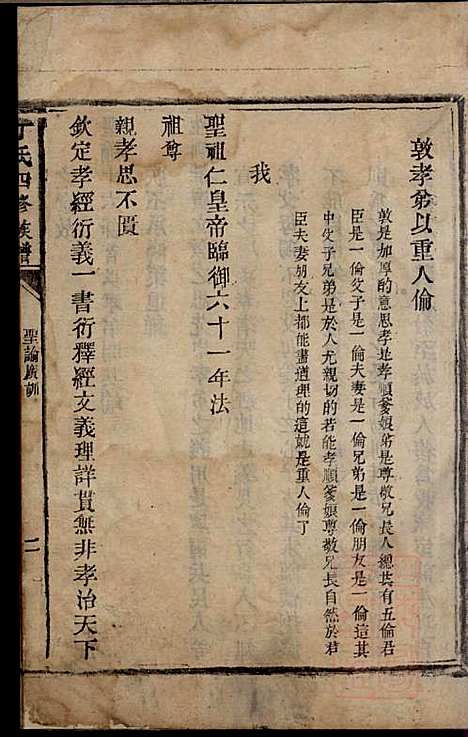 敦孝弟以重人倫
敦是加厚的意思孝是孝順爹娘弟是尊敬兄長人總共有五倫君
臣是一倫父子是一倫夫妻是一倫兄弟是一倫朋友是一倫這其
中父子兄弟是於人尤親切的若能孝順爹娘尊敬兄長自然於君
臣夫妻朋友上都能盡道理的這就是重人倫了
我
聖祖仁皇帝臨御六十一年法
祖尊
親孝思不匱
欽定孝經衍義一書衍釋經文義理詳貫無非孝治天下
丁氏四修族譜
聖諭廣訓
二